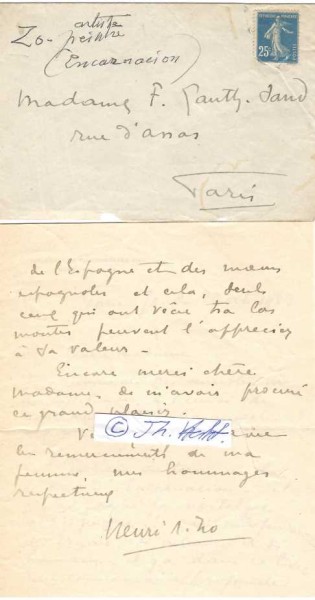 Zo- artiste
peintre
(Encarnacion)
REPUBLIQUE FRANÇAISE
25c
Madame F. Gauth. Sand
rue d'assas
Paris
de l'Espagne et des mœurs
espagnoles et cela, seuls
ceux qui ont vécu tra los
montes peuvent l'apprécier
à sa valeur -
Encore merci chère
madame de m'avoir procuré
ce grand plaisir.
© Th. 
les remerciements de ma
femme, mes hommages
respectueux
Henri A. Zo